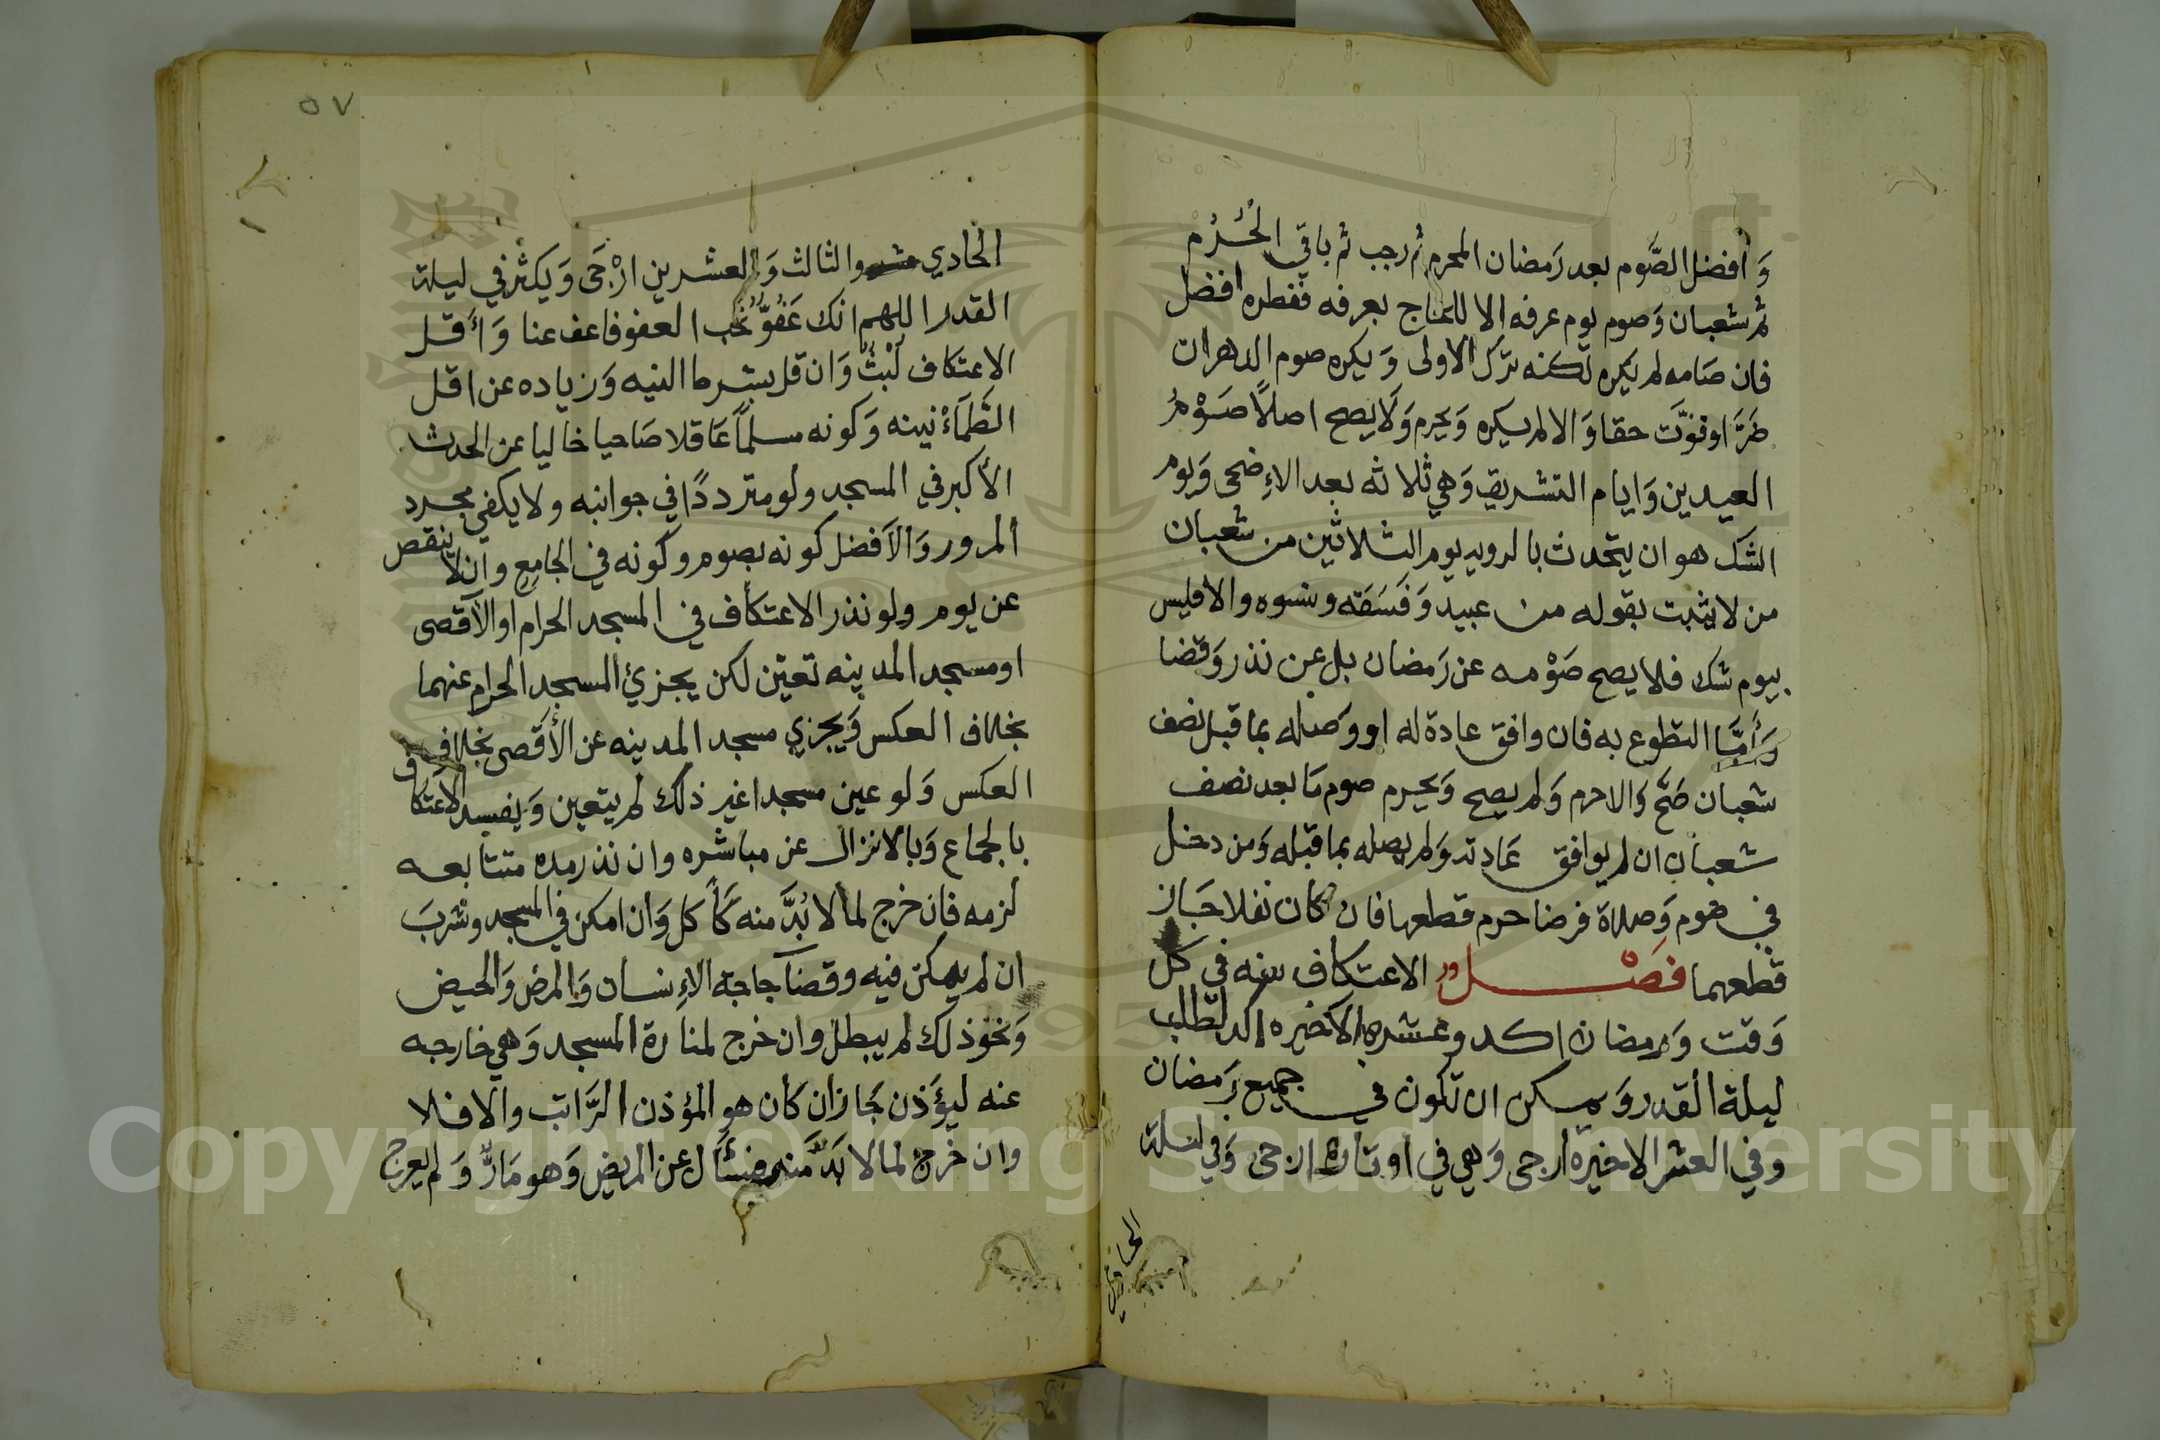 وَأفضل الصَّوم بعد رَمضان المحرم ثم رجب ثم باقي الحُرُم
ثم شعبان وَصوم يوم عرفه إلا للحاج بعرفه ففطره افضل
فان صَامه لم يكره لكنه ترك الاولى وَيكره صوم الدهر ان
ضَرَّ او فوَّت حقا وَالا لم يكره وَيحرم وَلَا يصح اصلاً صَوْمُ
العيدين وَايام التشريق وَهي ثلاثه بعد الاِضحى وَيوم
الشك هو ان يتحدث بالرويه يوم الثلاثين من شعبان
من لا يثبت بقوله من عبيد وَفَسَقَه ونسوه والا فليس
بيوم شك فلا يصح صَوْمه عن رَمضان بل عن نذر وَقضا
وَأَمَّا التطوع به فان وافق عادة له او وَصله بما قبل نصف
شعبان صَحَّ وَالا حرم وَلم يصح وَيحرم صوم مَا بعد نصف
شعبان ان لم يوافق عَادته وَلم يصله بما قبله وَمن دخل
في صوم وَصلاة فرضا حرم قطعها فان كان نفلا جَاز
قطعهما فَصْل الاعتكاف سنه في كل
وَقت وَرمضان اكد وعشره الاخيره اكد لطلب
ليلة القدر وَيمكن ان تكون في جميع رَمضان
وفي العشر الاخيره ارجى وَهي في اوتاره ارجى وَفي ليلة
الحادي
٥٧
الحادي والثالث وَالعشرين ارْجَى وَيكثر في ليلة
القدر اللهم انك عَفُوٌّ تُحب العفو فاعف عنا وَأَقل
الاعتكاف لَبْثٌ وَان قل بشرط النيه وَزياده عن اقل
الطَّمَاْنينه وَكونه مسلماً عَاقلا صَاحيا خاليا عن الحدث
الأكبر في المسجد ولو مترددًا في جوانبه ولا يكفي مجرد
المرور وَالأَفضل كونه بصوم وكونه في الجامِع وان لا ينقص
عن يوم ولو نذر الاعتكاف في المسجد الحرام او الأقصى
او مسجد المدينه تعيّن لكن يجزئ المسجد الحرام عنهما
بخلاف العكس وَيجزي مسجد المدينه عن الأقصى بخلاف
العكس وَلو عين مسجدا غير ذلك لم يتعين وَيفسد الاعتكاف
بالجماع وَبالانزال عن مباشره وان نذر مده متتابعه
لزمه فان خرج لما لا بُدَّ منه كَأَكل وَان امكن في المسجد وشربَ
ان لم يمكن فيه وقضآ حاجة الاِنسان وَالمرض وَالحيض
وَنحو ذلك لم يبطل وان خرج لمنارة المسجد وَهي خارجه
عنه ليؤَذن جَاز ان كان هو المؤذن الرَّاتب والا فلا
وان خرج لما لا بَدَّ منه فسَأَل عن المريض وَهو مَارٌّ وَلم يعرج